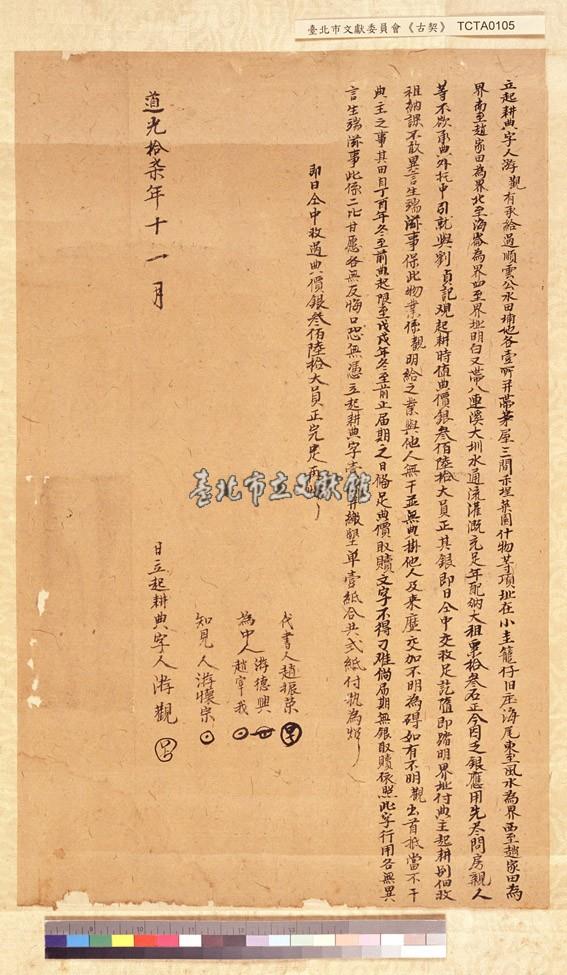 臺北市文獻委員會《古契》 TCTA0105
立起耕典字人游觀有承給過順雲公水田埔地各壹所并帶茅屋三間禾埕菜園什物等項址在小圭籠仔旧庄海尾東至風水為界西至趙家田為
界南至趙家田為界北至海崙為界四至界址明白又帶八連溪大圳水通流灌溉充足年配納大租粟拾叁石正今因乏銀應用先尽問房親人
等不欲承典外托中引就與劉貞記觀起耕時值典價銀叁佰陸拾大員正其銀即日仝中交收足訖隨即踏明界址付典主起耕別佃收
租納課不敢異言生端滋事保此物業係觀明給之業與他人無干並無典掛他人及來歷交加不明為碍如有不明觀出首抵當不干
典主之事其田自丁酉年冬至前典起限至戊戌年冬至前止届期之日俻足典價取贖文字不得刁难倘届期無銀取贖依照此字行用各無異
言生端滋事此係二比甘愿各無反悔口恐無憑立起耕典字壹紙并繳墾单壹紙合共弍紙付执為炤
即日仝中收過典價銀叁佰陸拾大員正完足再炤
代書人趙振榮
為中人游德興
趙宰我
知見人游懷崇
日立起耕典字人游觀
道光拾柒年十一月
臺北市立文獻館